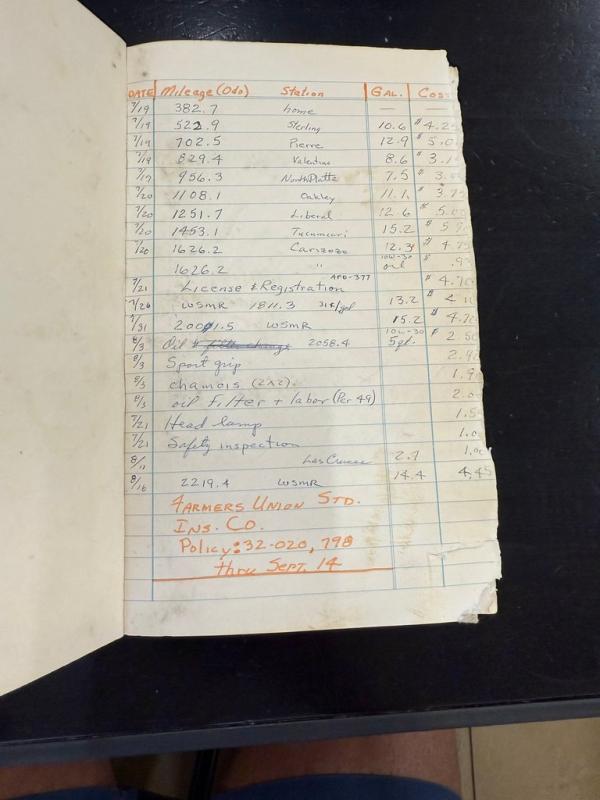 DATE Mileage (Odo) Station GAL. COST
7/19 382.7 home — —
7/19 522.9 Sterling 10.6 $ 4.2
7/19 702.5 Pierre 12.9 $ 5.0
7/19 829.4 Valentine 8.6 $ 3.1
7/19 956.3 North Platte 7.5 $ 3.
7/20 1108.1 Oakley 11.1 $ 3.7
7/20 1251.7 Liberal 12.6 $ 5.0
7/20 1453.1 Tucumcari 15.2 $ 5.
7/20 1626.2 Carizozo 12.3 $ 4.75
1626.2 " 10W-30 oil $ .9
7/21 License & Registration APD-377 $ 4.70
7/26 WSMR 1811.3 31¢/gal 13.2 $
7/31 2001.5 WSMR 15.2 $ 4.70
8/3 Oil & filter change 2058.4 10W-30 5qt. $ 2.50
8/3 Sport grip 2.9
8/3 chamois (2x2) 1.9
8/3 oil filter + labor (Per 49) 2.0
7/21 Head lamp 1.5
7/21 Safety inspection 1.0
8/11 Las Cruces 2.7 1.0
8/16 2219.4 WSMR 14.4 4.45
FARMERS UNION STD.
INS. CO.
Policy: 32-020,798
thru SEPT. 14